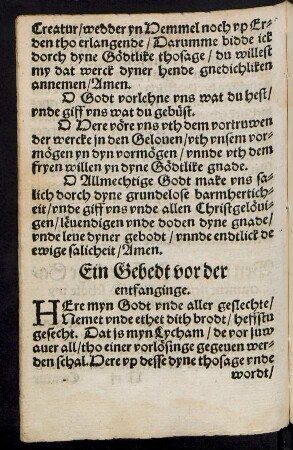 Creatur/wedder yn Hemmel noch vp Er-
den tho erlangende/Darumme bidde ick
dorch dyne Gödtlike thosage/du willest
my dat werck dyner hende gnedichliken
annemen/Amen.
O Godt vorlehne vns wat du hest/
vnde giff vns wat du gebüst.
O Here vöre vns vth dem vortruwen
der wercke in den Gelouen/vth vnsem vor-
mögen yn dyn vormögen/vnnde vth dem
fryen willen yn dyne Gödtlike gnade.
O Allmechtige Godt make vns sa-
lich dorch dyne grundelose barmherticH-
eit/vnde giff vns vnde allen Christgelöui-
gen/leuendigen vnde doden dyne gnade/
vnde leue dyner gebodt/vnnde endtlick de
ewige salicheit/Amen.
Ein Gebedt vor der
entfanginge.
HEre myn Godt vnde aller geslechte/
Nemet vnde ethet dith brodt/heffstu
gesecht. Dat is myn Lycham/de vor juw
auer all/tho einer vorlösinge gegeuen wer-
den schal. Here vp desse dyne thosage vnde
wordt/